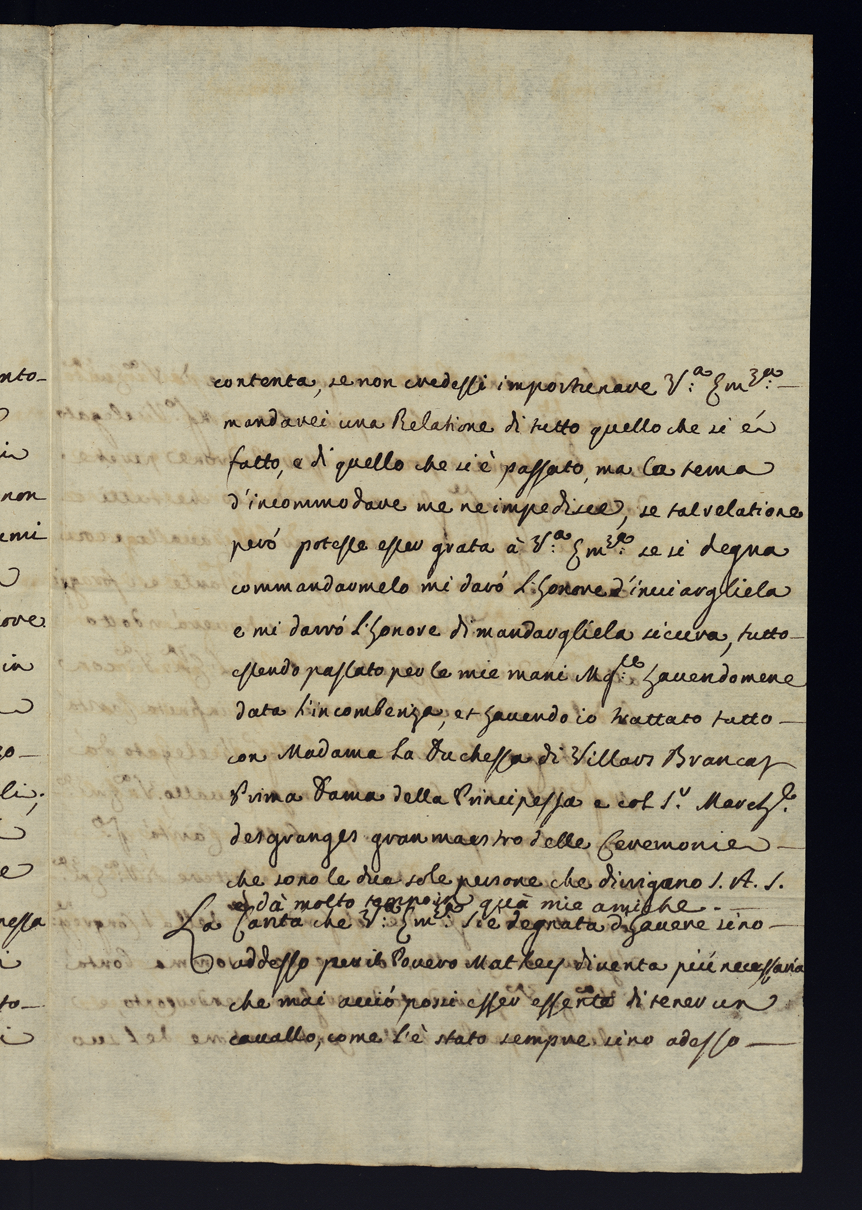 contenta, se non credessi importunare V.ª Em.ᶻª
mandarei una Relatione di tutto quello che si é
fatto, e di quello che si è passato, ma la tema
d'incommodare me ne impedisce, se tal relatione
peró potesse esser grata à V.ª Em.ᶻª se si degna
commandarmelo mi daró l'honore d'inviargliela
e mi darró l'honore di mandargliela sicura, tutto
essendo passato per le mie mani havendomene
data l'incombenza, et havendo io trattato tutto
con Madama La Duchessa di Villars Brancas
Prima Dama della Principessa e col S.ʳ March.ᵉ
desgranges gran maestro delle Ceremonie
che sono le due sole persone che dirigano S. A. S.
e da molto tempo in quà mie amiche.
La Carita che V.ª Em.ᶻª si è degnata d'havere sino
addesso per il Povero Mathey diventa più necessaria
che mai acció possi esser essente di tener un
cavallo, come l'è stato sempre sino adesso
nto-
in
non
ore
in
li;
e
nessa
to-